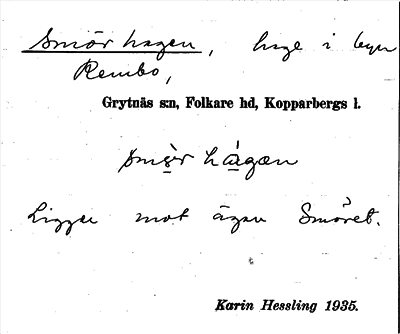 Smörhagen, hage i byn
Rembo,
Grytnäs s:n, Folkare hd, Kopparbergs l.
smö̀r hágæn
Ligger mot ägan Smöret.
Karin Hessling 1935.